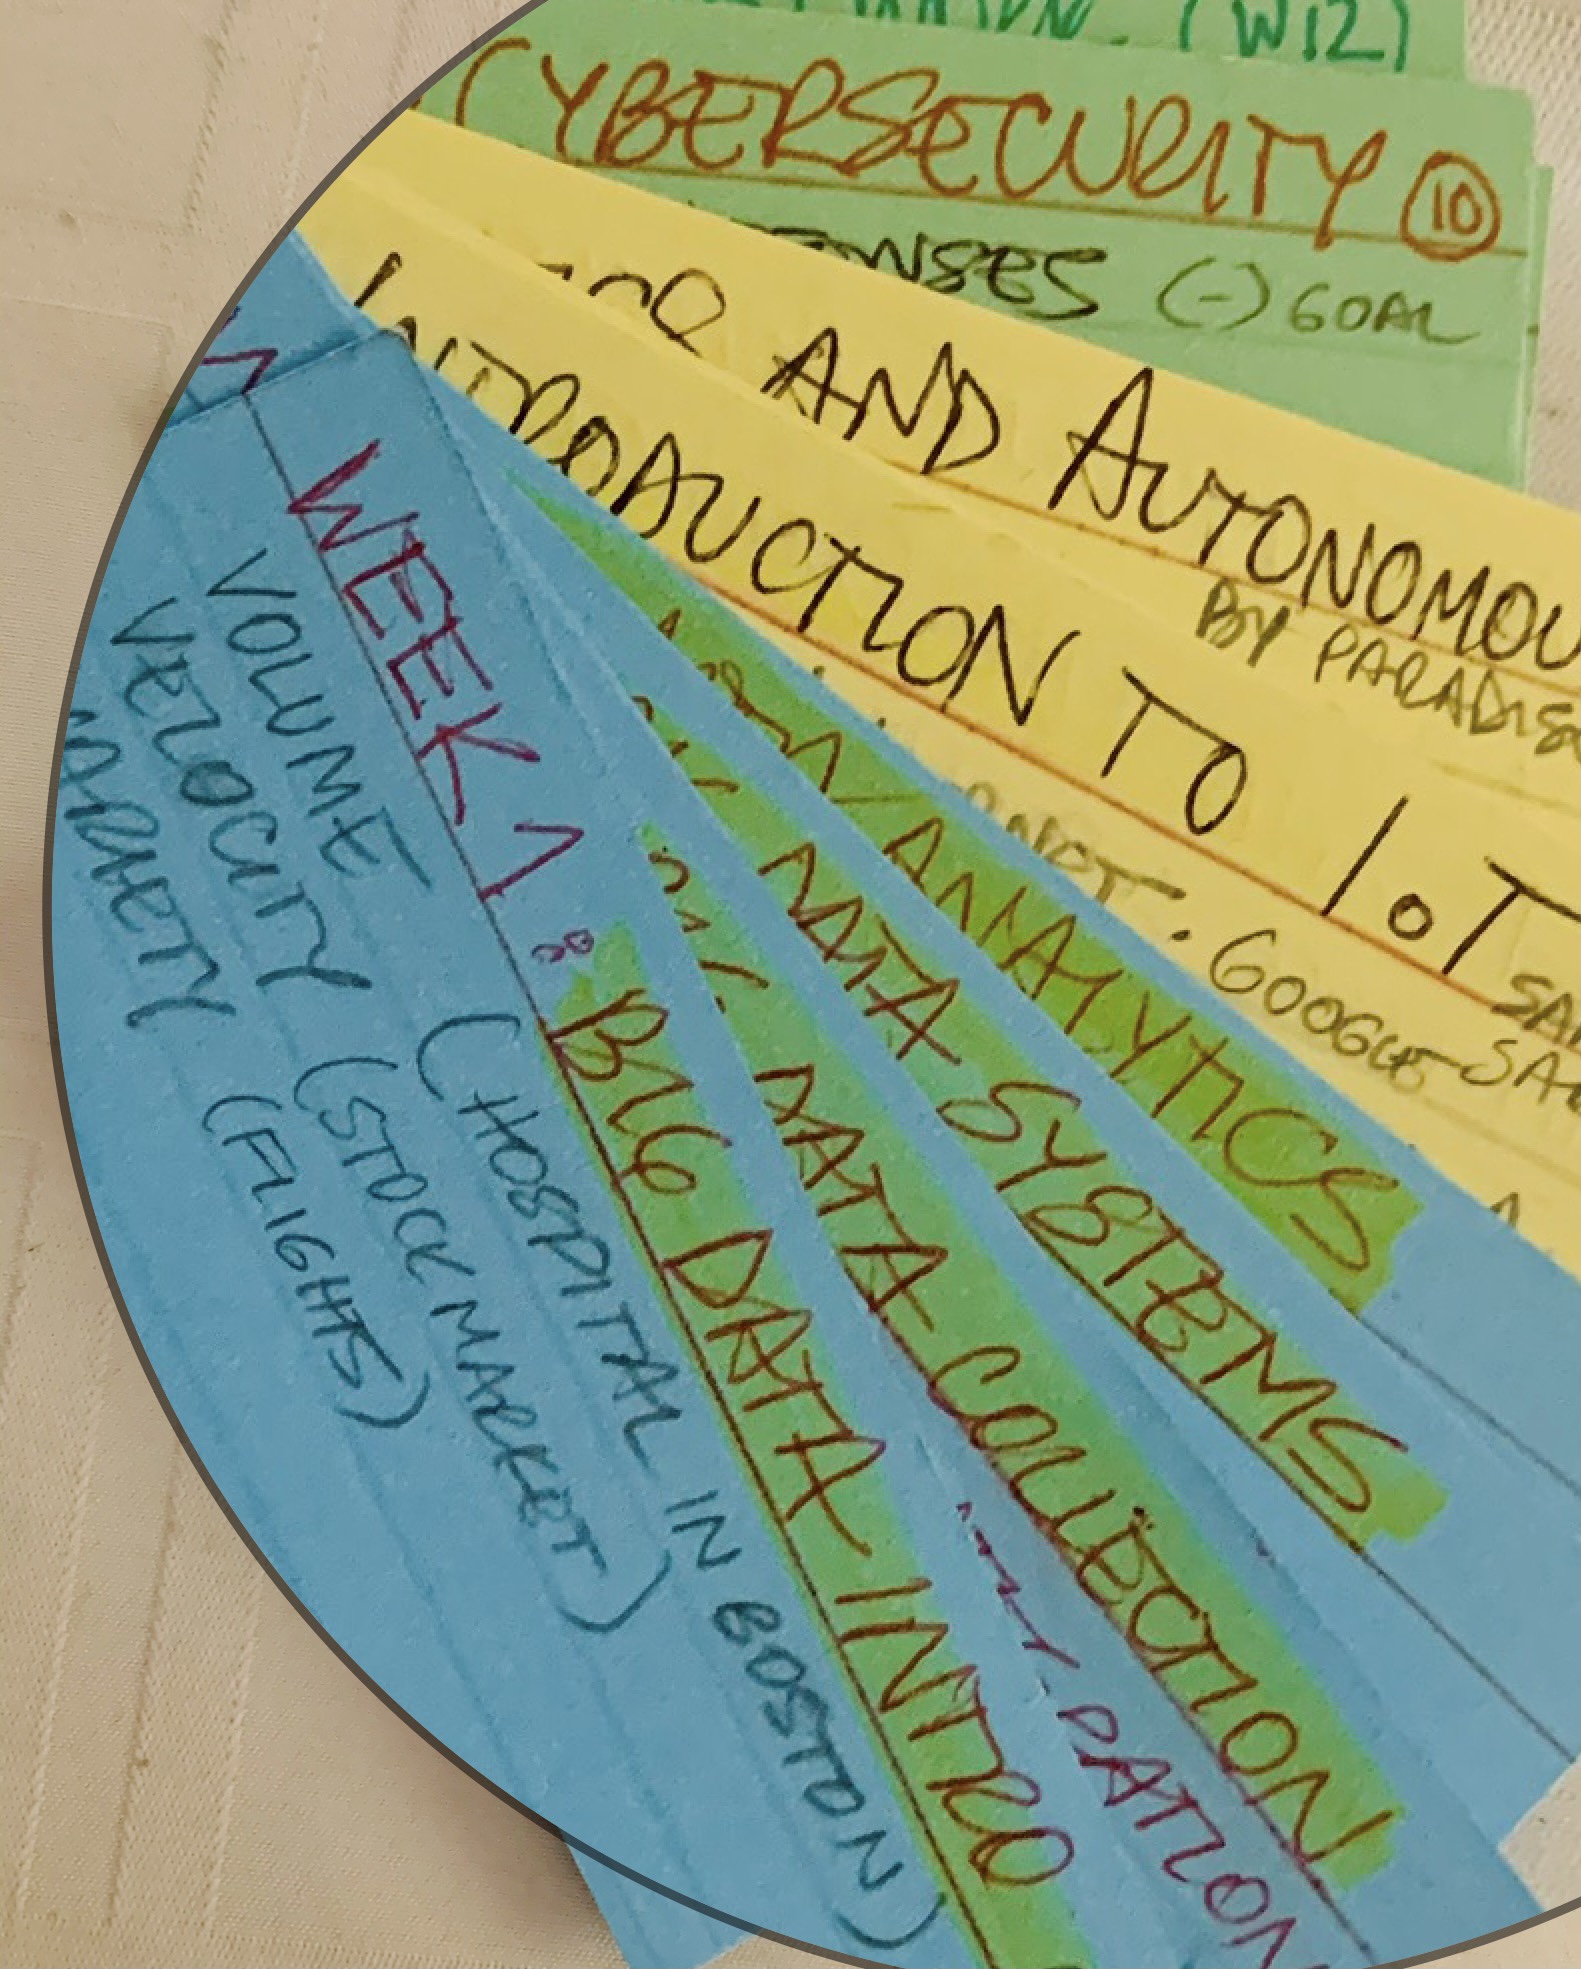 (W12)
CYBERSECURITY 10
(-) GOAL
AND AUTONOMOU
BY PARADIS
INTRODUCTION TO I.o.T
. GOOGLE
ANALYTICS
DATA SYSTEMS
DATA COLLECTION
WEEK 1: BIG DATA INTRO
VOLUME (HOSPITAL IN BOSTON)
VELOCITY (STOCK MARKET)
VARIETY (FLIGHTS)